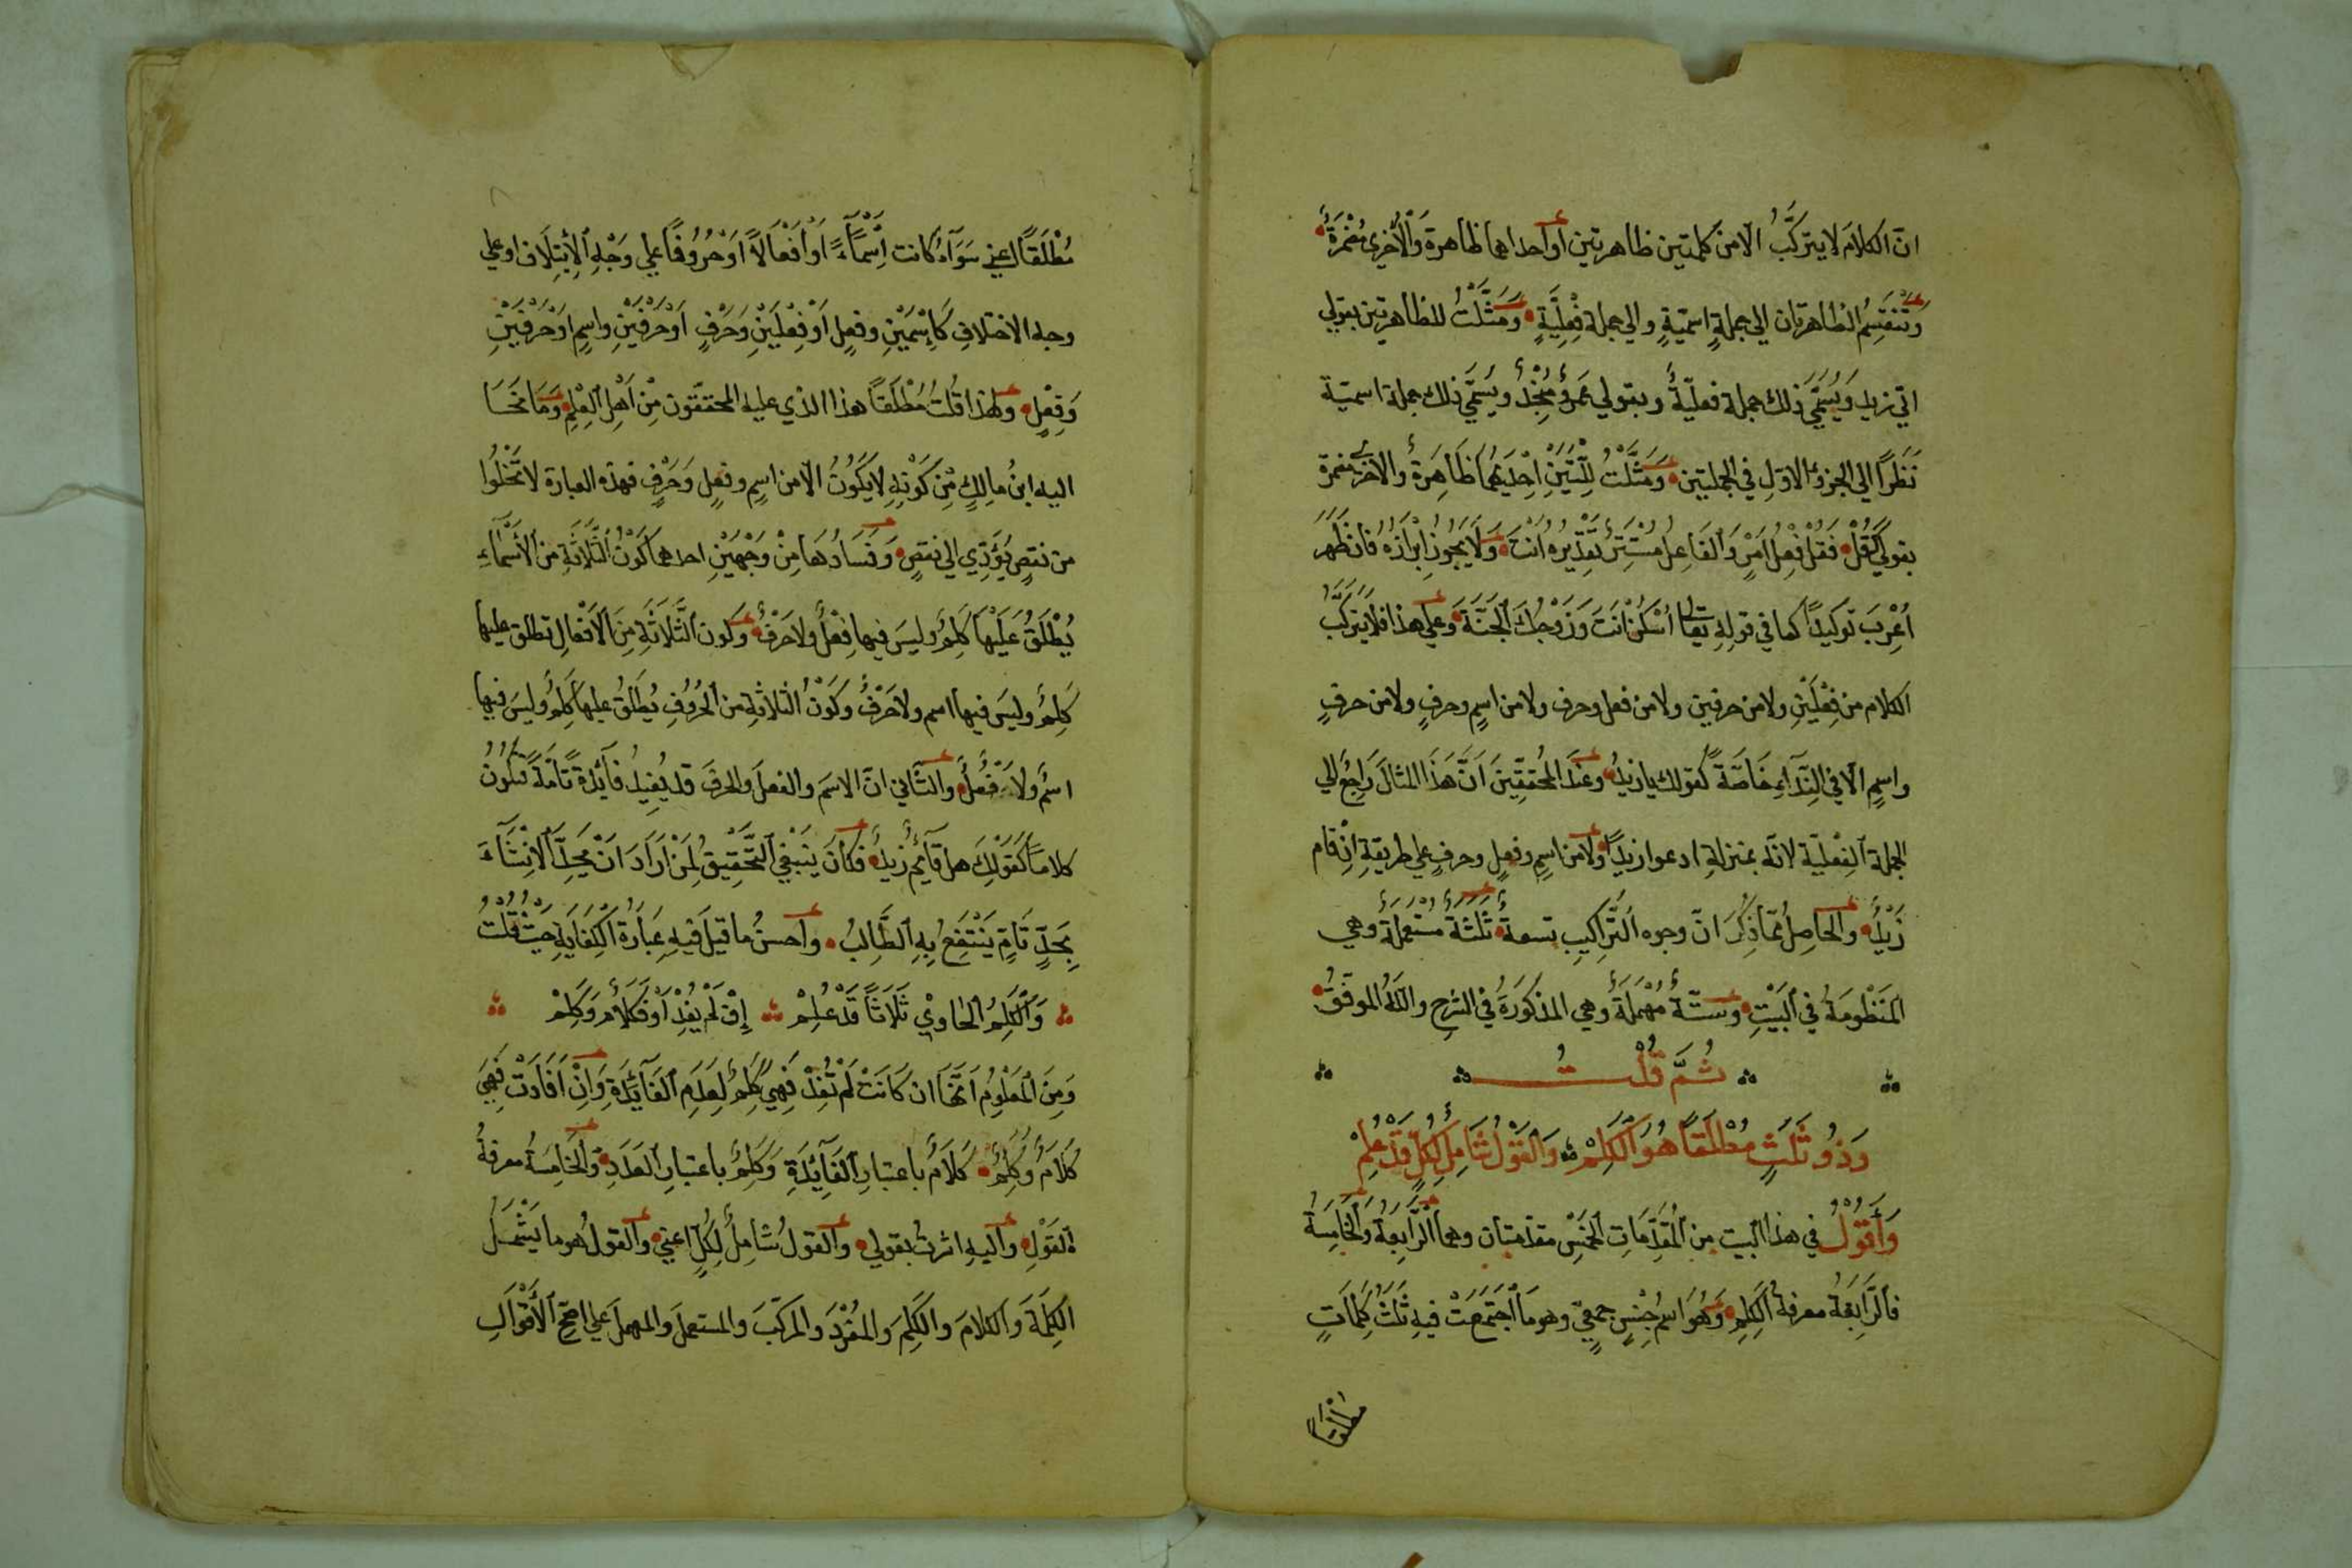 انّ الكلامَ لا يتركَّبُ الّا من كلمتين ظاهرتين أو احداهما ظاهرة وَالْأُخرى مضمرَةٌ
وَتَنقَسِمُ الظاهرتان الى جملةٍ اسميّةٍ والى جملة فِعْلِيَّةٍ وَمَثَّلْتُ للظاهرتين بقولي
اتى زيد وَيُسَمَّى ذٰلك جملة فعليّةً وبقولي عَمرٌو مُنْجِدٌ ويُسَمَّى ذلك جملة اسميّة
نَظَرًا الى الجزؤ الاوّلِ في الجملتين وَمَثَّلْتُ لِلَّتَيْنِ اِحْدَيهُمَا ظَاهِرَةٌ والاخرى مضمرة
بقولي كَقُلْ فَقُلْ فِعْلُ اَمْرٍ وَالفَاعِلُ مُسْتَتِرٌ تَقْدِيرُهُ اَنْتَ وَلَا يَجُوزُ اِبْرَازُهُ فان ظَهَرَ
اُعْرِبَ توكيدًا كما في قولِهِ تعالى اُسْكُنْ اَنتَ وَزَوْجُكَ الْجَنَّةَ وَعلى هذا فلا يَتَركَّبُ
الكلام من فِعْلَيْنِ ولا من حرفين ولا من فعل وحرف ولا من اسمٍ وحرفٍ ولا من حرفٍ
واسمٍ الّا في النِّدَآءِ خَاصَّةً كقولك يا زيدُ وعندَ المحُقّقِينَ اَنَّ هَذَا المثالَ رَاجِعٌ الى
الجملة الفِعْليّة لانّه بمنزلةِ ادعوا زيدًا ولا من اسمٍ وفعلٍ وحرفٍ على طريقةِ اِنْ قام
زَيْدٌ والحَاصِلُ مّما ذُكِرَ انّ وجوه التَّراكِيبِ تسعةٌ ثَلٰثةٌ مُسْتعملةٌ وهي
المَنْظُومَةُ في البَيْتِ وستّةٌ مُهْمَلَةٌ وهي المذكورَةُ في الشرحِ واللهُ الموفّقُ
ثُمَّ قُلْتُ
وَذُو ثَلٰثٍ مُطْلَقًا هُوَ الْكَلِمْ وَالقَوْلُ شَامِلٌ لِكُلٍّ قَدْ عُلِمْ
وَأَقُوْلُ في هذا البيت من المُقَدِّمَاتِ الخَمْسِ مقدّمتان وهما الرَّابِعَةُ وَالخَامِسَةُ
فالرَّابِعَة معرفةُ الكَلِمِ وَهُوَ اسمُ جِنْسٍ جمعيٍّ وهو مَا اجْتَمَعَتْ فيهِ ثَلٰثُ كلماتٍ
مطلقًا
مُطْلَقًا اعني سَوَآءٌ كانت اِسْمَآءً اَوْ اَفْعَالاً اَوْ حُرُوفًا على وَجْهِ الاِيْتِلَافِ او على
وجه الاختلافِ كَاِسْمَيْنِ وفعلٍ اَوْ فِعْلَيْنِ وَحَرْفٍ اَوْ حَرْفَيْنِ واسمٍ اوْ حَرْفَيْنِ
وَفِعْلٍ ولهذا قُلْتُ مُطْلَقًا هذا الذي عليه المحققّون مِنْ اَهْلِ العِلْمِ وَمَا نَحَا
اليه ابنُ مالِكٍ مِنْ كَوْنِهِ لا يَكُوْنُ الّا من اسمٍ وفعلٍ وَحَرْفٍ فهذه العبارة لا تَخْلُوا
من نقصٍ يُؤَدِّي الى نقصٍ وَفَسَادُهَا مِنْ وَجْهَيْنِ احدهما كَوْنُ الثَّلَاثَةِ من الْأَسْمَآءِ
يُطْلَقُ عَلَيْهَا كَلِمٌ وليسَ فيها فِعْلٌ ولا حَرْفٌ وَكون الثَّلَاثَةِ مِنَ الْاَفْعَالِ تطلق عليها
كَلِمٌ وليسَ فيها اسم ولا حَرْفٌ وكَوْنُ الثلاثةِ من الحُرُوفِ يُطْلَقُ عليها كَلِمٌ وليسَ فيها
اسْمٌ ولا فِعْلٌ والثَّاني انّ الاسمَ والفعلَ والحرفَ قد يُفِيدُ فَآئِدَةً تَامَّةً فَيَكُوْنُ
كلامًا كقَوْلِكَ هل قآئِمٌ زيدٌ فكَانَ يَنبَغي التَّحْقِيقُ لِمَنْ اَرَادَ اَنْ يَحِدَّ الْاَشْيَآءَ
بِحَدٍّ تَامٍّ يَنْتَفِعُ بِهِ الطَّالِبُ واَحسنُ ما قيل فيهِ عِبَارَةُ الكِفَايَةِ حَيْثُ قُلْتُ
وَالْكَلِمُ الحَاوِيْ ثَلَاثًا قَدْ عُلِمْ إِنْ لَمْ يُفِدْ اَوْ فَكَلَامٌ وَكَلِمْ
وَمِنَ الْمَعْلُومِ اَنَّهَا ان كَانَتْ لَمْ تُفِدْ فَهِيَ كَلِمٌ لِعَدَمِ الفَآئِدَةِ وَاِنْ اَفَادَتْ فَهِيَ
كَلَامٌ وَكَلِمٌ كَلَامٌ باعتبارِ الفَآئِدَةِ وَكَلِمٌ باعتبارِ العَدَدِ وَالخَامِسَةُ معرفةُ
القَوْلِ وَاليهِ اشرتُ بقولي وَالقولُ شَامِلٌ لِكُلٍّ اعني وَالقولُ هو ما يَشْمَلُ
الكِلَمَةَ وَالكلامَ والكَلِمَ وَالمُفْرَدَ وَالمركّبَ والمستعملَ والمهملَ على اصَحِّ الْأَقْوَالِ